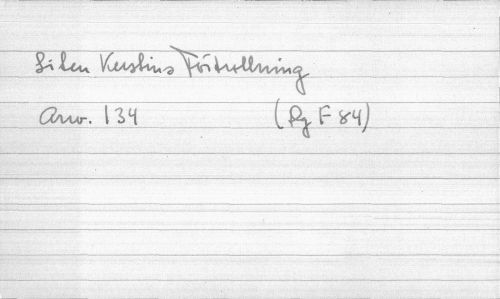 Liten Kerstins Förtrollning
Arw. 134 (Rg F 84)